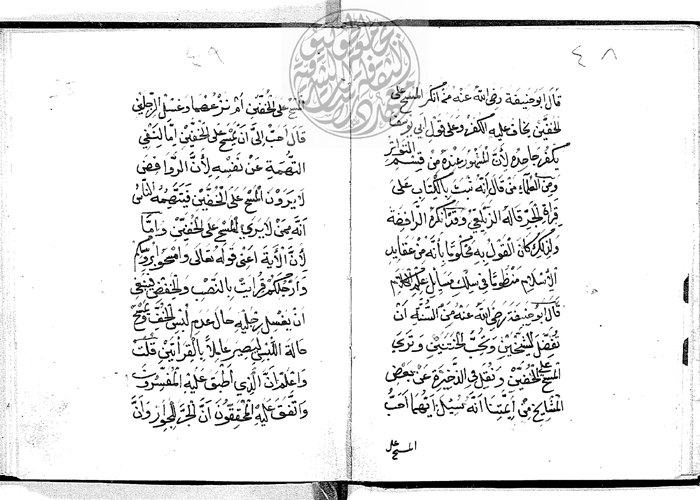 ٤٨
قال ابو حنيفة رضي الله عنه من انكر المسح على
الخفين يخاف عليه الكفر وعلى قول ابي يوسف
يكفر جاحده لأن المشهور عنده من قسم التواتر
ومن العلماء من قال انه ثبت بالكتاب على
قراة الجر قاله الزيلعي وقد انكره الرافضة
ولذلك كان القول به محكوما بأنه من عقايد
الاسلام منظوما في سلك مسايل علم الكلام
قال ابو حنيفة رضي الله عنه من السنة ان
تفضل الشيخين وتحب الختنين وترى
المسح على الخفين ونقل في الذخيرة عن بعض
المشايخ من ائمتنا انه سيل ايهما احب
المسح على
٤٩
المسح على الخفين ام نزعهما وغسل الرجلين
قال احب الي ان يمسح على الخفين اما لنفي
التهمة عن نفسه لأن الروافض
لا يرون المسح على الخفين فيتهمه الناس
انه ممن لا يرى المسح على الخفين واما
لأن الآية اعني قوله تعالى وامسحوا برؤسكم
وارجلكم قرات بالنصب والخفض فينبغي
ان يغسل رجليه حال عدم لبس الخف ويمسح
حالة اللبس ليصير عاملا بالقرأتين قلت
واعلم ان الذي اطبق عليه المفسرون
واتفق عليه المحققون ان الجر للجوار وان